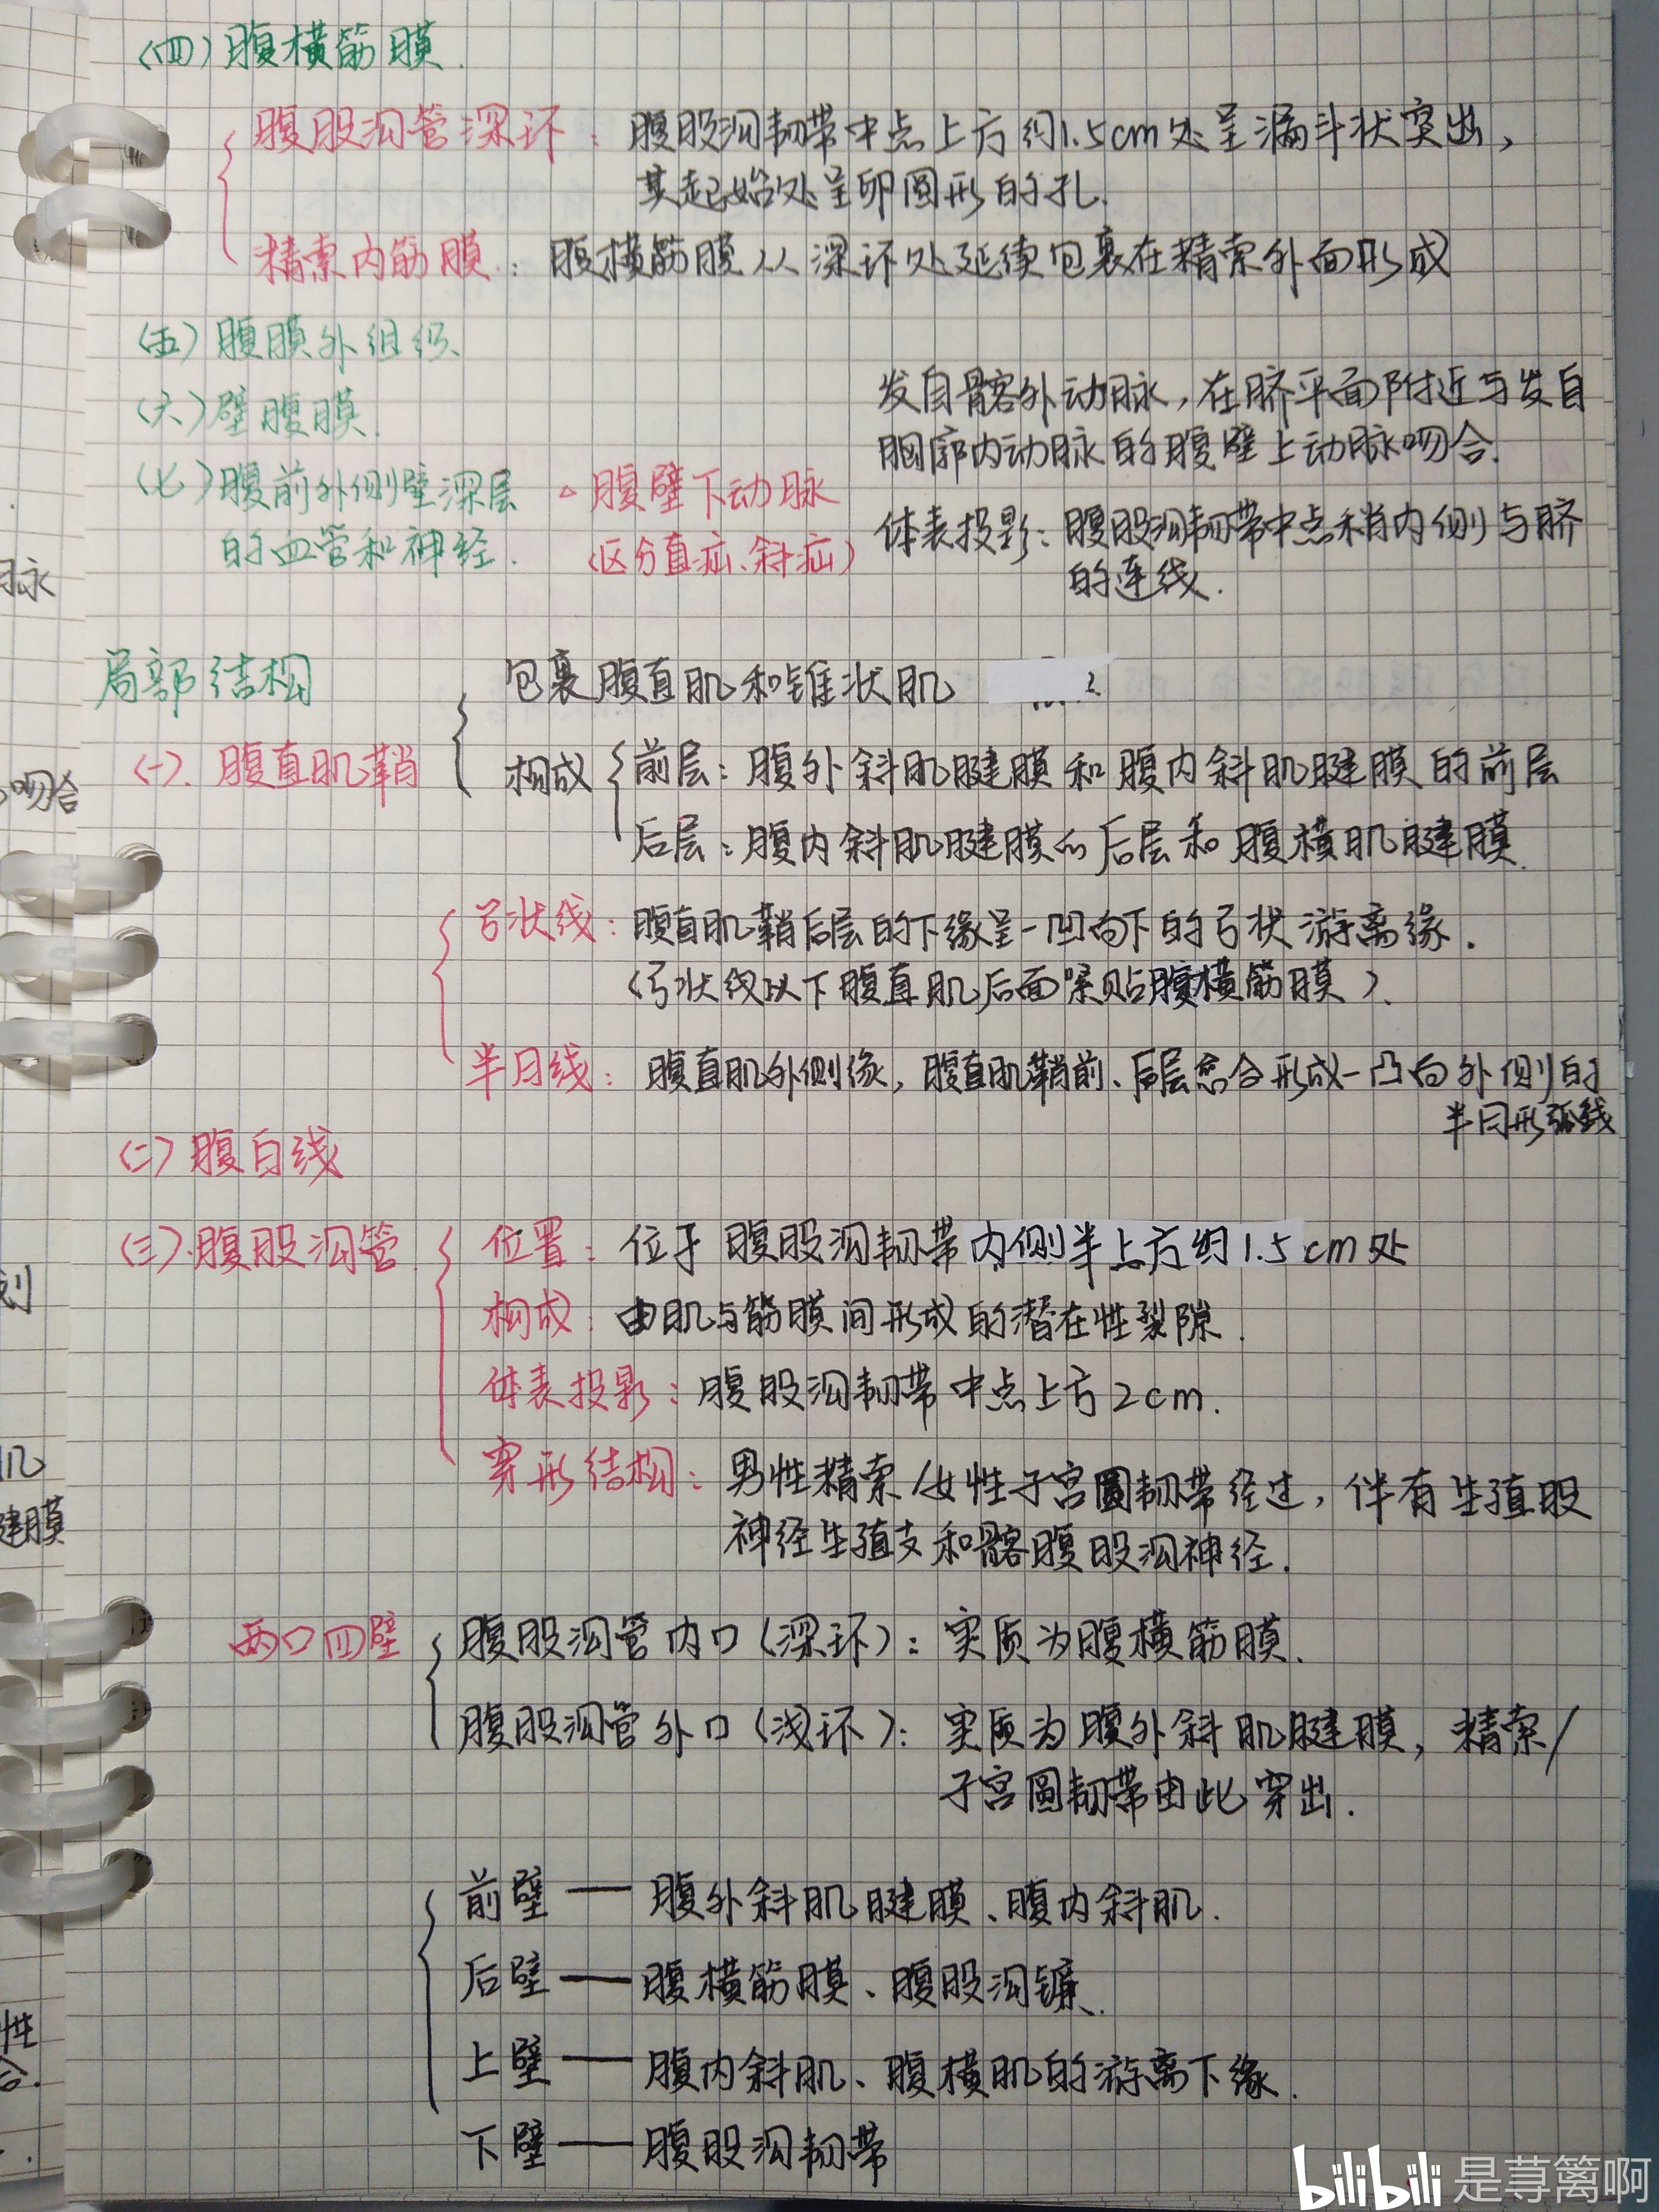 (四)腹横筋膜.
腹股沟管深环：腹股沟韧带中点上方约1.5cm处呈漏斗状突出，
其起始处呈卵圆形的孔.
精索内筋膜：腹横筋膜从深环处延续包裹在精索外面形成
(五)腹膜外组织
(六)壁腹膜.
发自髂外动脉，在脐平面附近与发自
胸廓内动脉的腹壁上动脉吻合.
(七)腹前外侧壁深层
的血管和神经.
△腹壁下动脉
(区分直疝、斜疝)
体表投影：腹股沟韧带中点稍内侧与脐
的连线.
局部结构
(一).腹直肌鞘
包裹腹直肌和锥状肌
构成
前层：腹外斜肌腱膜和腹内斜肌腱膜的前层
后层：腹内斜肌腱膜的后层和腹横肌腱膜.
弓状线：腹直肌鞘后层的下缘呈一凹向下的弓状游离缘.
(弓状线以下腹直肌后面紧贴腹横筋膜).
半月线：腹直肌外侧缘，腹直肌鞘前、后层愈合形成一凸向外侧的
半月形弧线
(二)腹白线
(三).腹股沟管
位置：位于腹股沟韧带内侧半上方约1.5cm处
构成：由肌与筋膜间形成的潜在性裂隙.
体表投影：腹股沟韧带中点上方2cm.
穿形结构：男性精索/女性子宫圆韧带经过，伴有生殖股
神经生殖支和髂腹股沟神经.
两口四壁
腹股沟管内口(深环)：实质为腹横筋膜.
腹股沟管外口(浅环)：实质为腹外斜肌腱膜，精索/
子宫圆韧带由此穿出.
前壁——腹外斜肌腱膜、腹内斜肌.
后壁——腹横筋膜、腹股沟镰.
上壁——腹内斜肌、腹横肌的游离下缘.
下壁——腹股沟韧带
脉
吻合
划
肌
腱膜
性
合.
bilibili 是荨篱啊